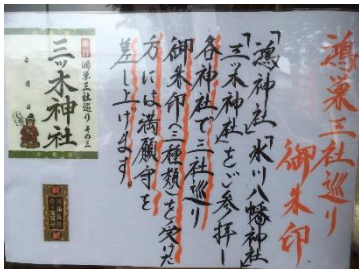 鴻巣三社巡り
御朱印
「鴻神社」「氷川八幡神社」
「三ッ木神社」をご参拝し
各神社で三社巡り
御朱印(三種類)を受けた
方には満願守を
差し上げます。
鴻巣三社巡り その三
三ッ木神社
年 月 日